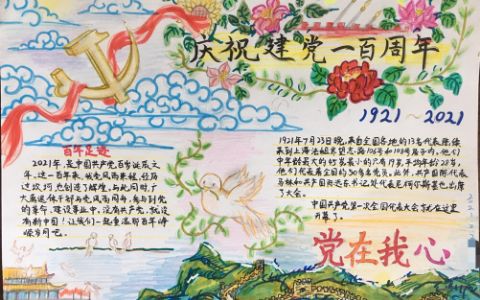 庆祝建党一百周年
1921~2021
百年足迹
2021年,是中国共产党百年诞辰之
年。这一百年来,我党风雨兼程,经马
过坎坷,也创造了辉煌。与此同时,广
大党员
的革命、建设事业中。没有共产党,就没
有新中国!让我们一起重温那百年峥
嵘岁月吧。
1921年7月23日晚,来自全国各地的13名代表陆续
来到上海法租界
中年龄最大的45岁最小的只有19岁,平均年龄28岁,
他们代表着全国的50多名党员。此外,共产国际代表
马林和共产国际远东书记处代表尼柯尔斯基也出席
了大会。
中国共产党第一次全国代表大会就在这里
开幕了。
党在我心